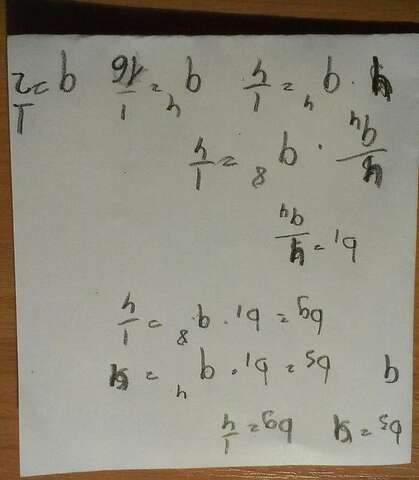 b₅ = 4 b₉ = 1/4
q b₅ = b₁ · q⁴ = 4
b₉ = b₁ · q⁸ = 1/4
b₁ = 4/q⁴
4/q⁴ · q⁸ = 1/4
4 · q⁴ = 1/4 q⁴ = 1/16 q = 1/2